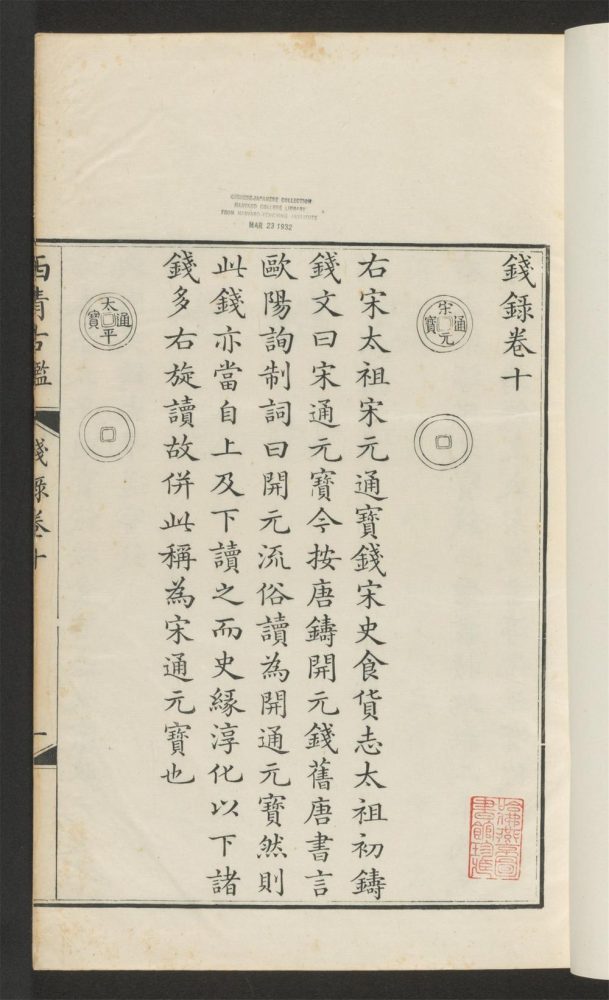 CHINESE-JAPANESE COLLECTION
HARVARD COLLEGE LIBRARY
FROM HARVARD-YENCHING INSTITUTE
MAR 23 1932
錢錄卷十
宋元通寶
右宋太祖宋元通寶錢宋史食貨志太祖初鑄
錢文曰宋通元寶今按唐鑄開元錢舊唐書言
歐陽詢制詞曰開元流俗讀為開通元寶然則
此錢亦當自上及下讀之而史緣淳化以下諸
錢多右旋讀故併此稱為宋通元寶也
太平通寶
西清古鑑
錢錄卷十
一
哈佛燕京圖
書館珍藏